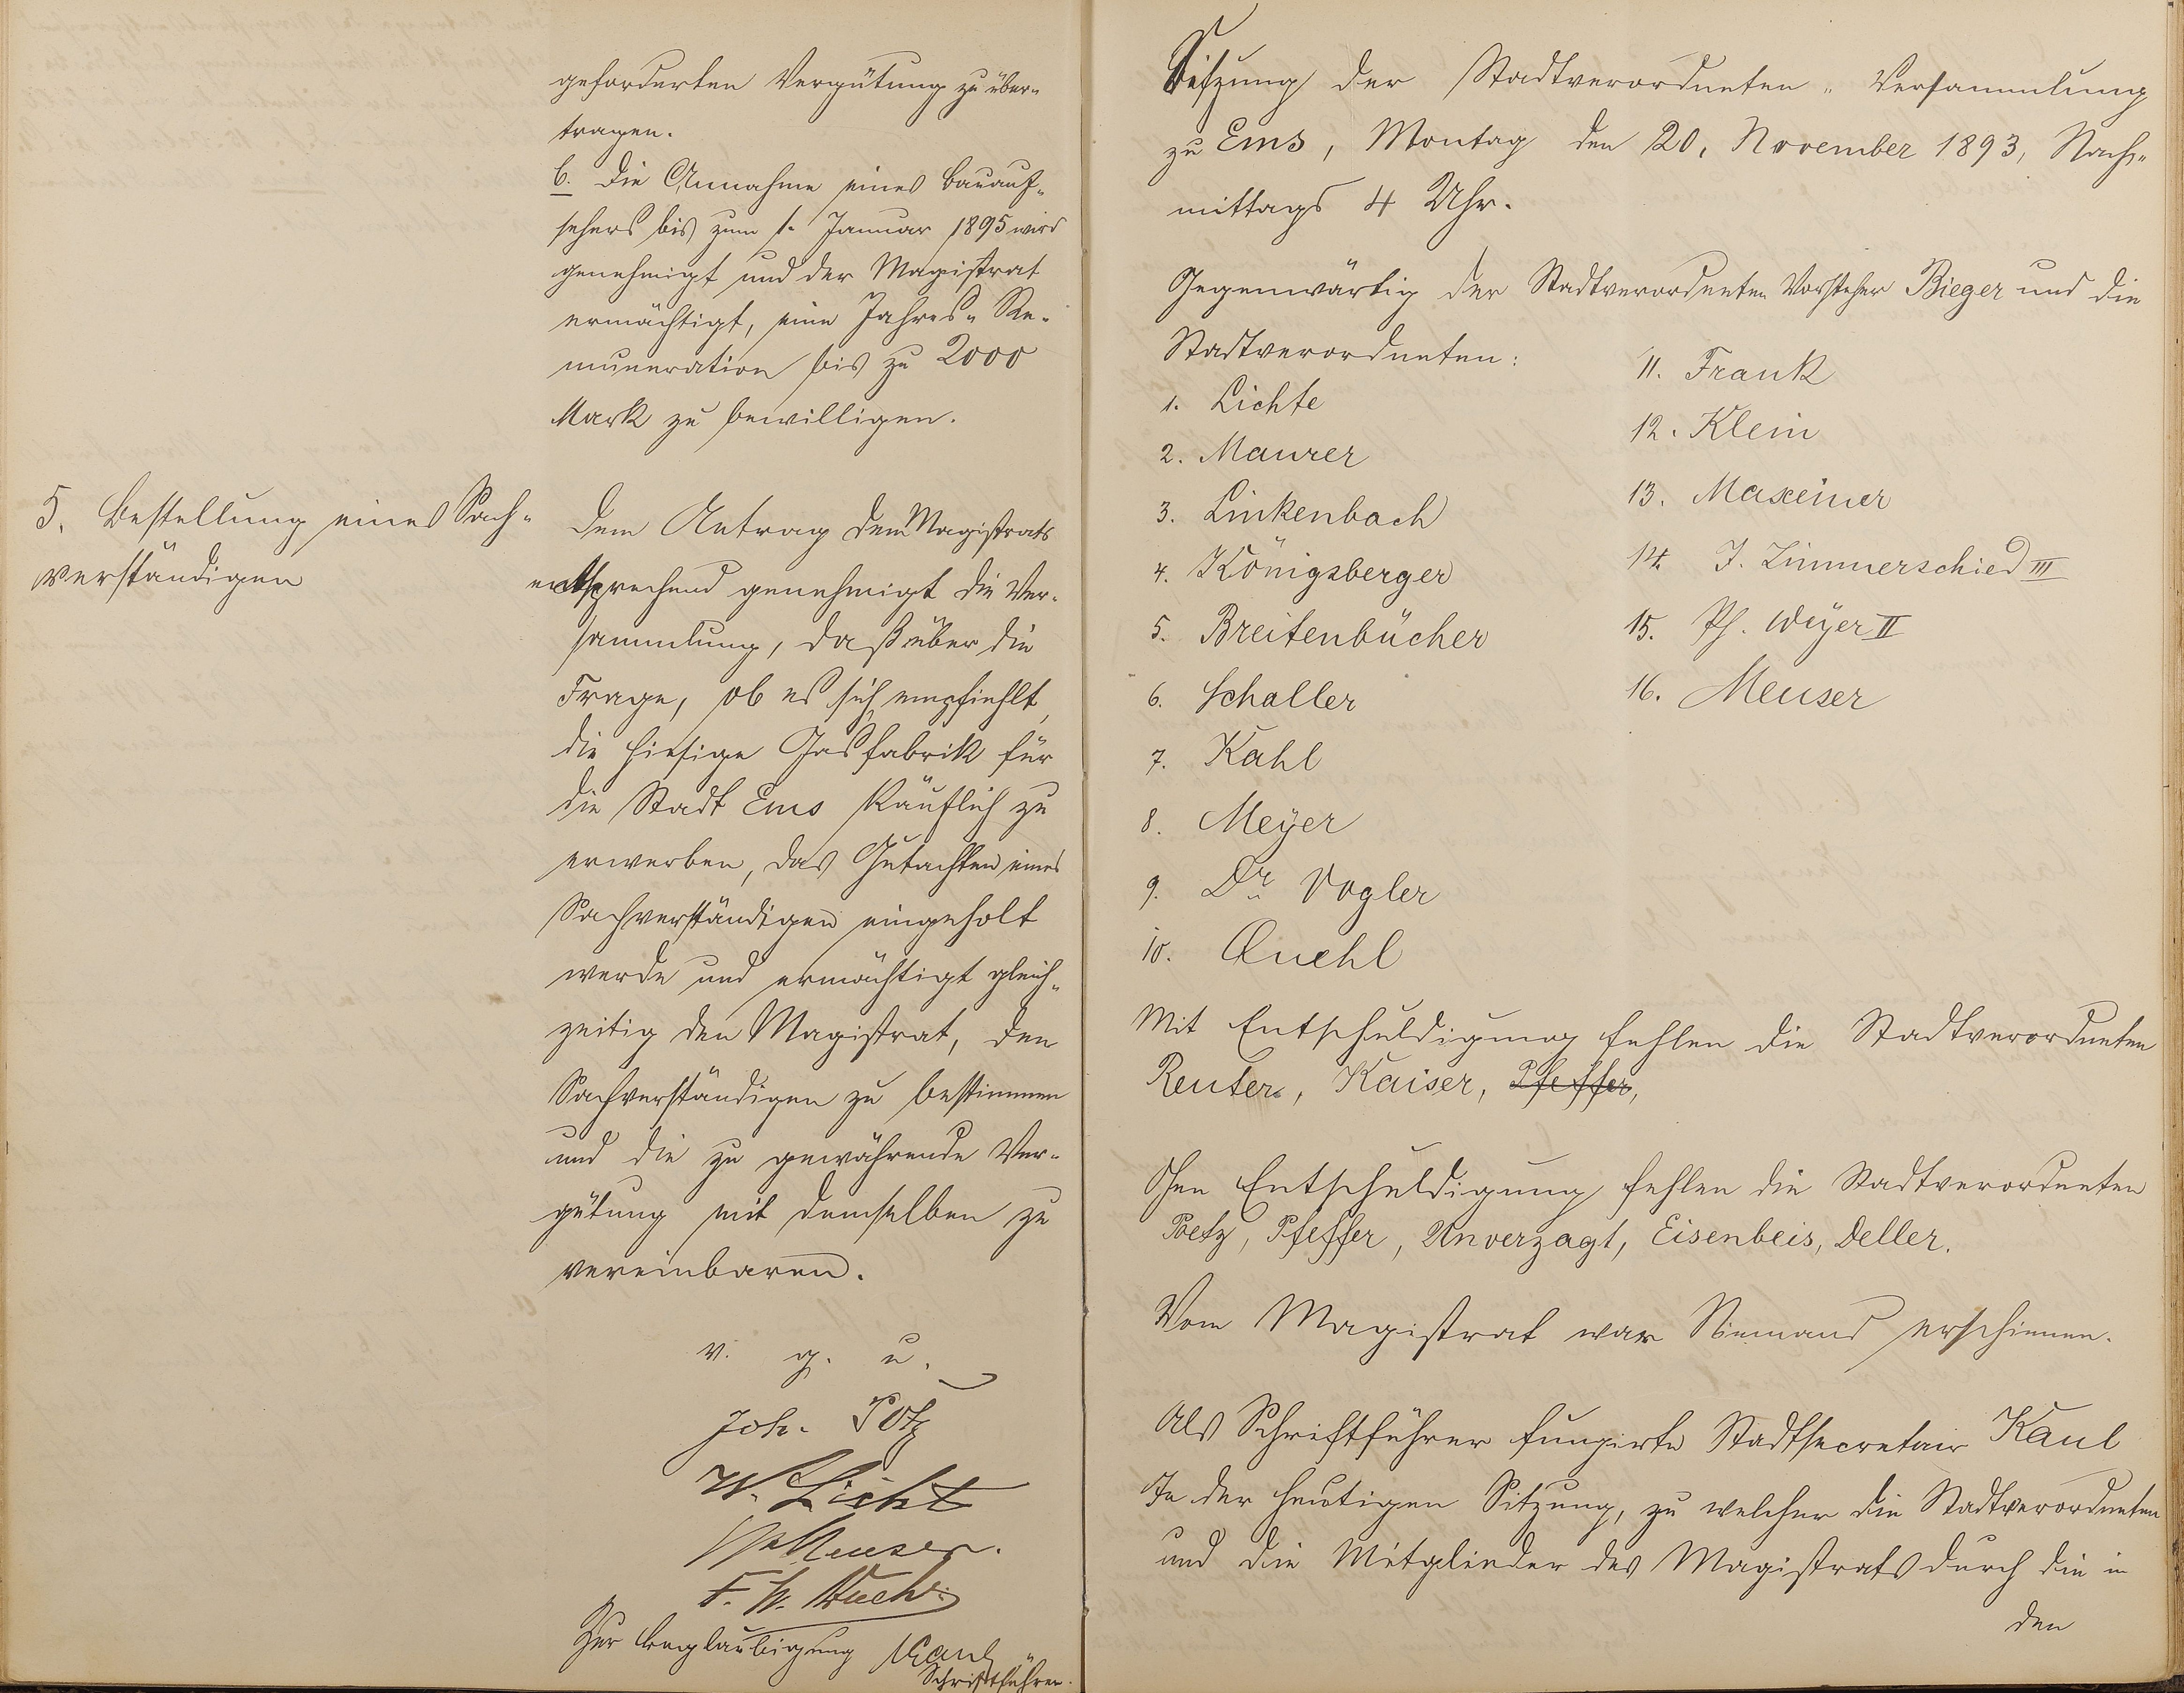 geforderten Vergütung zu über-
tragen.
b. Die Annahme eines Bauauf-
sehers bis zum 1. Januar 1895 wird
genehmigt und der Magistrat
ermächtigt, eine Jahres-Re-
muneration bis zu 2000
Mark zu bewilligen.
5. Bestellung eines Sach-
verständigen
Dem Antrag des Magistrats
entsprechend genehmigt die Ver-
sammlung, daß über die
Frage, ob es sich empfiehlt,
die hiesige Gasfabrik für
die Stadt Ems käuflich zu
erwerben, das Gutachten eines
Sachverständigen eingeholt
werde und ermächtigt gleich-
zeitig den Magistrat, den
Sachverständigen zu bestimmen
und die zu gewährende Ver-
gütung mit demselben zu
vereinbaren.
v. g. u.
Joh. Pötz
W. Licht
Meuser.
F. W.
Zur Beglaubigung Kaul
Schriftführer.
Sitzung der Stadtverordneten-Versammlung
zu Ems, Montag den 20. November 1893, Nach-
mittags 4 Uhr.
Gegenwärtig der Stadtverordneten Vorsteher Bieger und die
Stadtverordneten:
1. Lichte
2. Maurer
3. Linkenbach
4. Königsberger
5. Breitenbücher
6. Schaller
7. Kahl
8. Meÿer
9. Dr. Vogler
10. Quehl
11. Frank
12. Klein
13. Maxeiner
14. J. Zimmerschied III
15. Ph. Weÿer II
16. Meuser
Mit Entschuldigung fehlen die Stadtverordneten
Reuter, Kaiser, Pfeffer,
Ohen Entschuldigung fehlen die Stadtverordneten
Poetz, Pfeffer, Unverzagt, Eisenbeis, Deller.
Vom Magistrat war Niemand erschienen.
Als Schriftführer fungirte Stadtsecretair Kaul
In der heutigen Sitzung, zu welcher die Stadtverordneten
und die Mitglieder des Magistrats durch die in
den